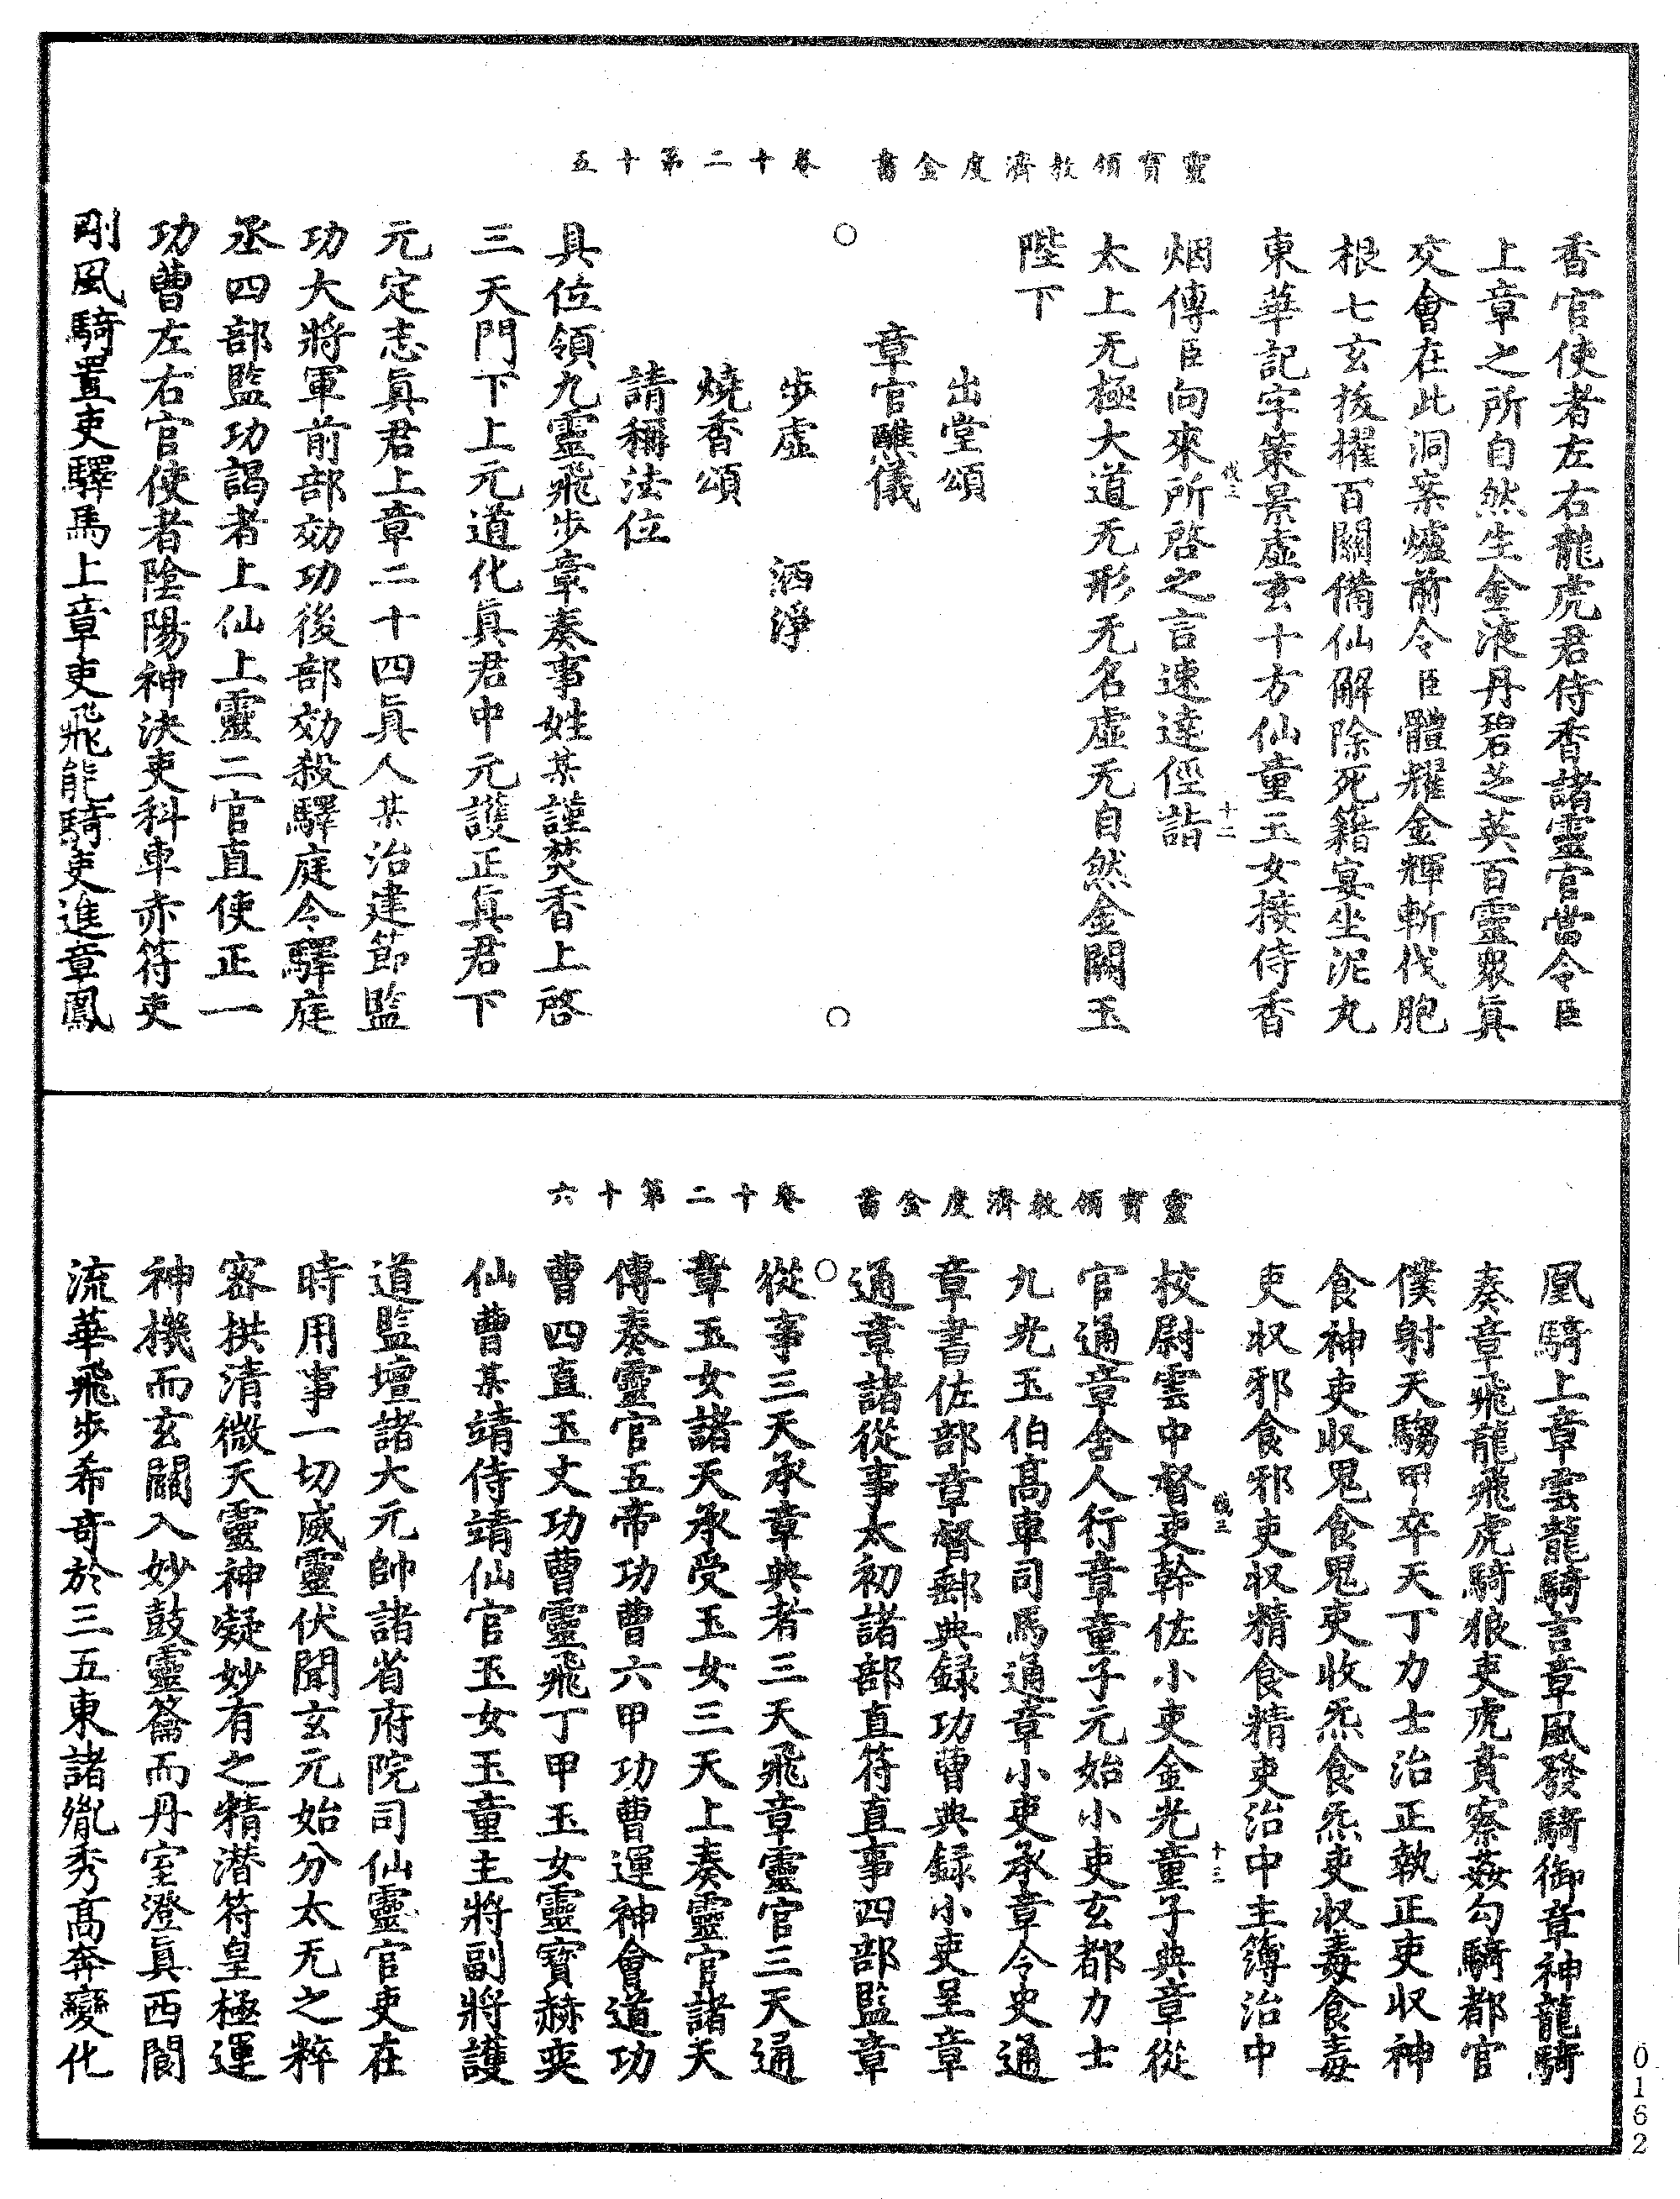 靈寶領教濟度金書　卷十二第十五
香官使者左右龍虎君侍香諸靈官當令臣
上章之所自然生金液丹碧芝英百靈衆眞
交會在此洞案爐前令臣體耀金輝斬伐胞
根七玄拔擢百關備仙解除死籍宴坐泥丸
東華記字策景虛玄十方仙童玉女接侍香
十二
烟傳臣向來所啓之言速達徑詣
太上无極大道无形无名虛无自然金闕玉
陛下
出堂頌
章官醮儀
○
步虛　洒淨
燒香頌
請稱法位
具位領九靈飛步章奏事姓某謹焚香上啓
三天門下上元道化眞君中元護正眞君下
元定志眞君上章二十四眞人某治建節監
功大將軍前部効功後部効殺驛庭令驛庭
丞四部監功謁者上仙上靈二官直使正一
功曹左右官使者陰陽神決吏科車赤符吏
剛風騎置吏驛馬上章吏飛龍騎吏進章鳳
靈寶領教濟度金書　卷十二第十六
凰騎上章雲龍騎言章風發騎御章神龍騎
奏章飛龍飛虎騎狼吏虎賁察姦勾騎都官
僕射天騶甲卒天丁力士治正執正吏収神
食神吏収鬼食鬼吏收炁食炁吏収毒食毒
吏収邪食邪吏収精食精吏治中主簿治中
十三
校尉雲中督吏幹佐小吏金光童子典章從
官通章舍人行章童子元始小吏玄都力士
九光玉伯髙車司馬通章小吏承章令史通
章書佐部章督郵典録功曹典録小吏呈章
通章諸從事太初諸部直符直事四部監章
從事三天承章典者三天飛章靈官三天通
章玉女諸天承受玉女三天上奏靈官諸天
傳奏靈官五帝功曹六甲功曹運神會道功
曹四直玉文功曹靈飛丁甲玉女靈寶赫奕
仙曹某靖侍靖仙官玉女玉童主將副將護
道監壇諸大元帥諸省府院司仙靈官吏在
時用事一切威靈伏聞玄元始分太无之粹
宻拱清微天靈神凝妙有之精潜符皇極運
神機而玄闢入妙鼓靈籥而丹室澄眞西閬
流華飛步希奇於三五東諸胤秀髙奔變化
0162